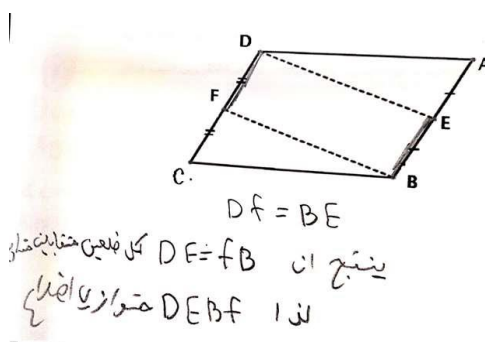 D
A
F
E
C.
B
Df = BE
ينتج ان DE = fB كل ضلعين متقابلين
لذا DEBf متوازي اضلاع